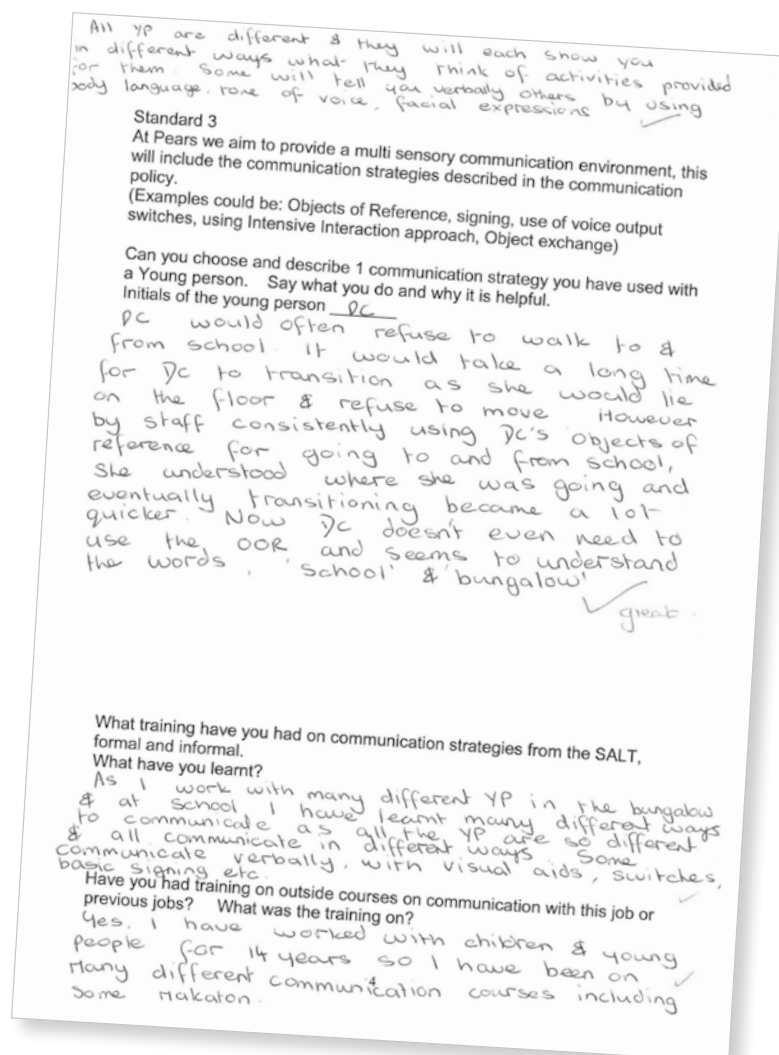 All YP are different & they will each show you
in different ways what they think of activities provided
for them. Some will tell you verbally others by using
body language, tone of voice, facial expressions
Standard 3
At Pears we aim to provide a multi sensory communication environment, this
will include the communication strategies described in the communication
policy.
(Examples could be: Objects of Reference, signing, use of voice output
switches, using Intensive Interaction approach, Object exchange)
Can you choose and describe 1 communication strategy you have used with
a Young person. Say what you do and why it is helpful.
Initials of the young person DC
DC would often refuse to walk to &
from school. It would take a long time
for DC to transition as she would lie
on the floor & refuse to move However
by staff consistently using DC's objects of
reference for going to and from school,
She understood where she was going and
eventually transitioning became a lot
quicker. Now DC doesn't even need to
use the OOR and seems to understand
the words, 'School' & 'bungalow'
great.
What training have you had on communication strategies from the SALT,
formal and informal.
What have you learnt?
As I work with many different YP in the bungalow
& at school I have learnt many different ways
to communicate as all the YP are so different
& all communicate in different ways Some
communicate verbally, with visual aids, switches,
basic signing etc.
Have you had training on outside courses on communication with this job or
previous jobs? What was the training on?
Yes. I have worked with children & young
people for 14 years so I have been on
Many different communication courses including
Some Makaton.
4